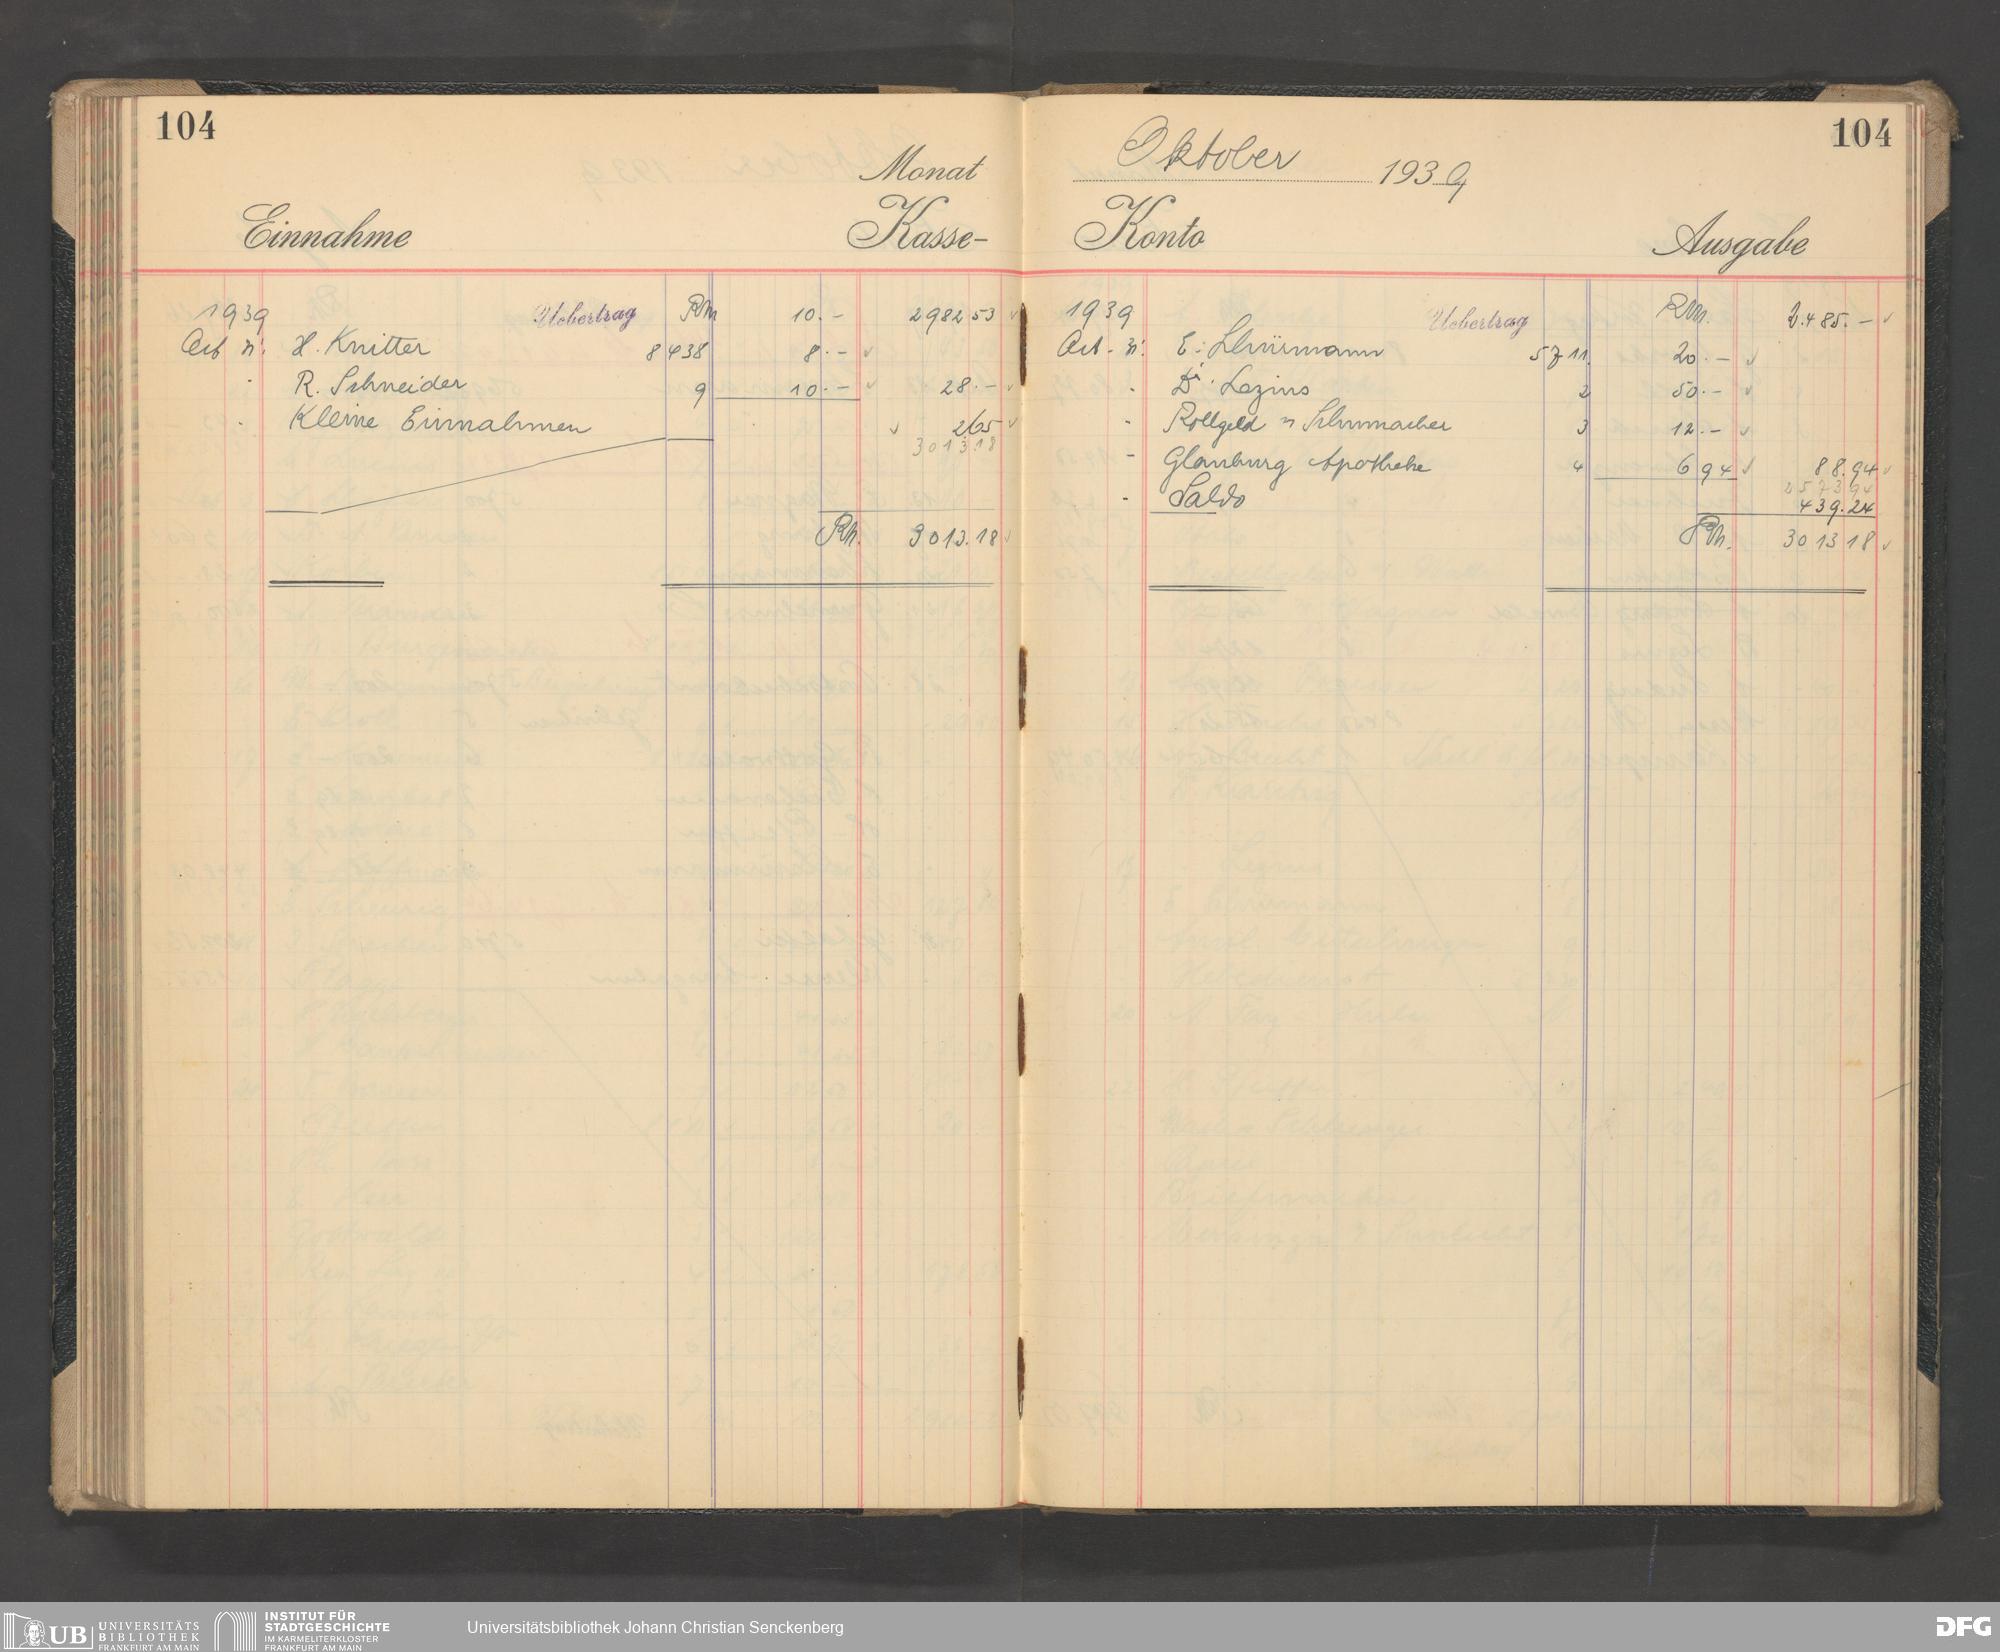 104
Monat
Einnahme Kasse-
1939 Uebertrag RM 10.- 2982 53
Okt 31. H. Knitter 8438 8.-
" R. Schneider 9 10.- 28.-
" Kleine Einnahmen 2 65
3013.18
RM. 3013.18
104
Oktober 1939
Konto Ausgabe
1939 Uebertrag RM. 2.485.-
Okt. 31. E. Schürmann 5711. 20.-
" Dr. Lezius 2 50.-
" Rollgeld Schumacher 3 12.-
" Glauburg Apotheke 4 6 94 88.94
2573 94
" Saldo 439.24
RM. 3013 18
UB UNIVERSITÄTS
BIBLIOTHEK
FRANKFURT AM MAIN
INSTITUT FÜR
STADTGESCHICHTE
IM KARMELITERKLOSTER
FRANKFURT AM MAIN
Universitätsbibliothek Johann Christian Senckenberg
DFG